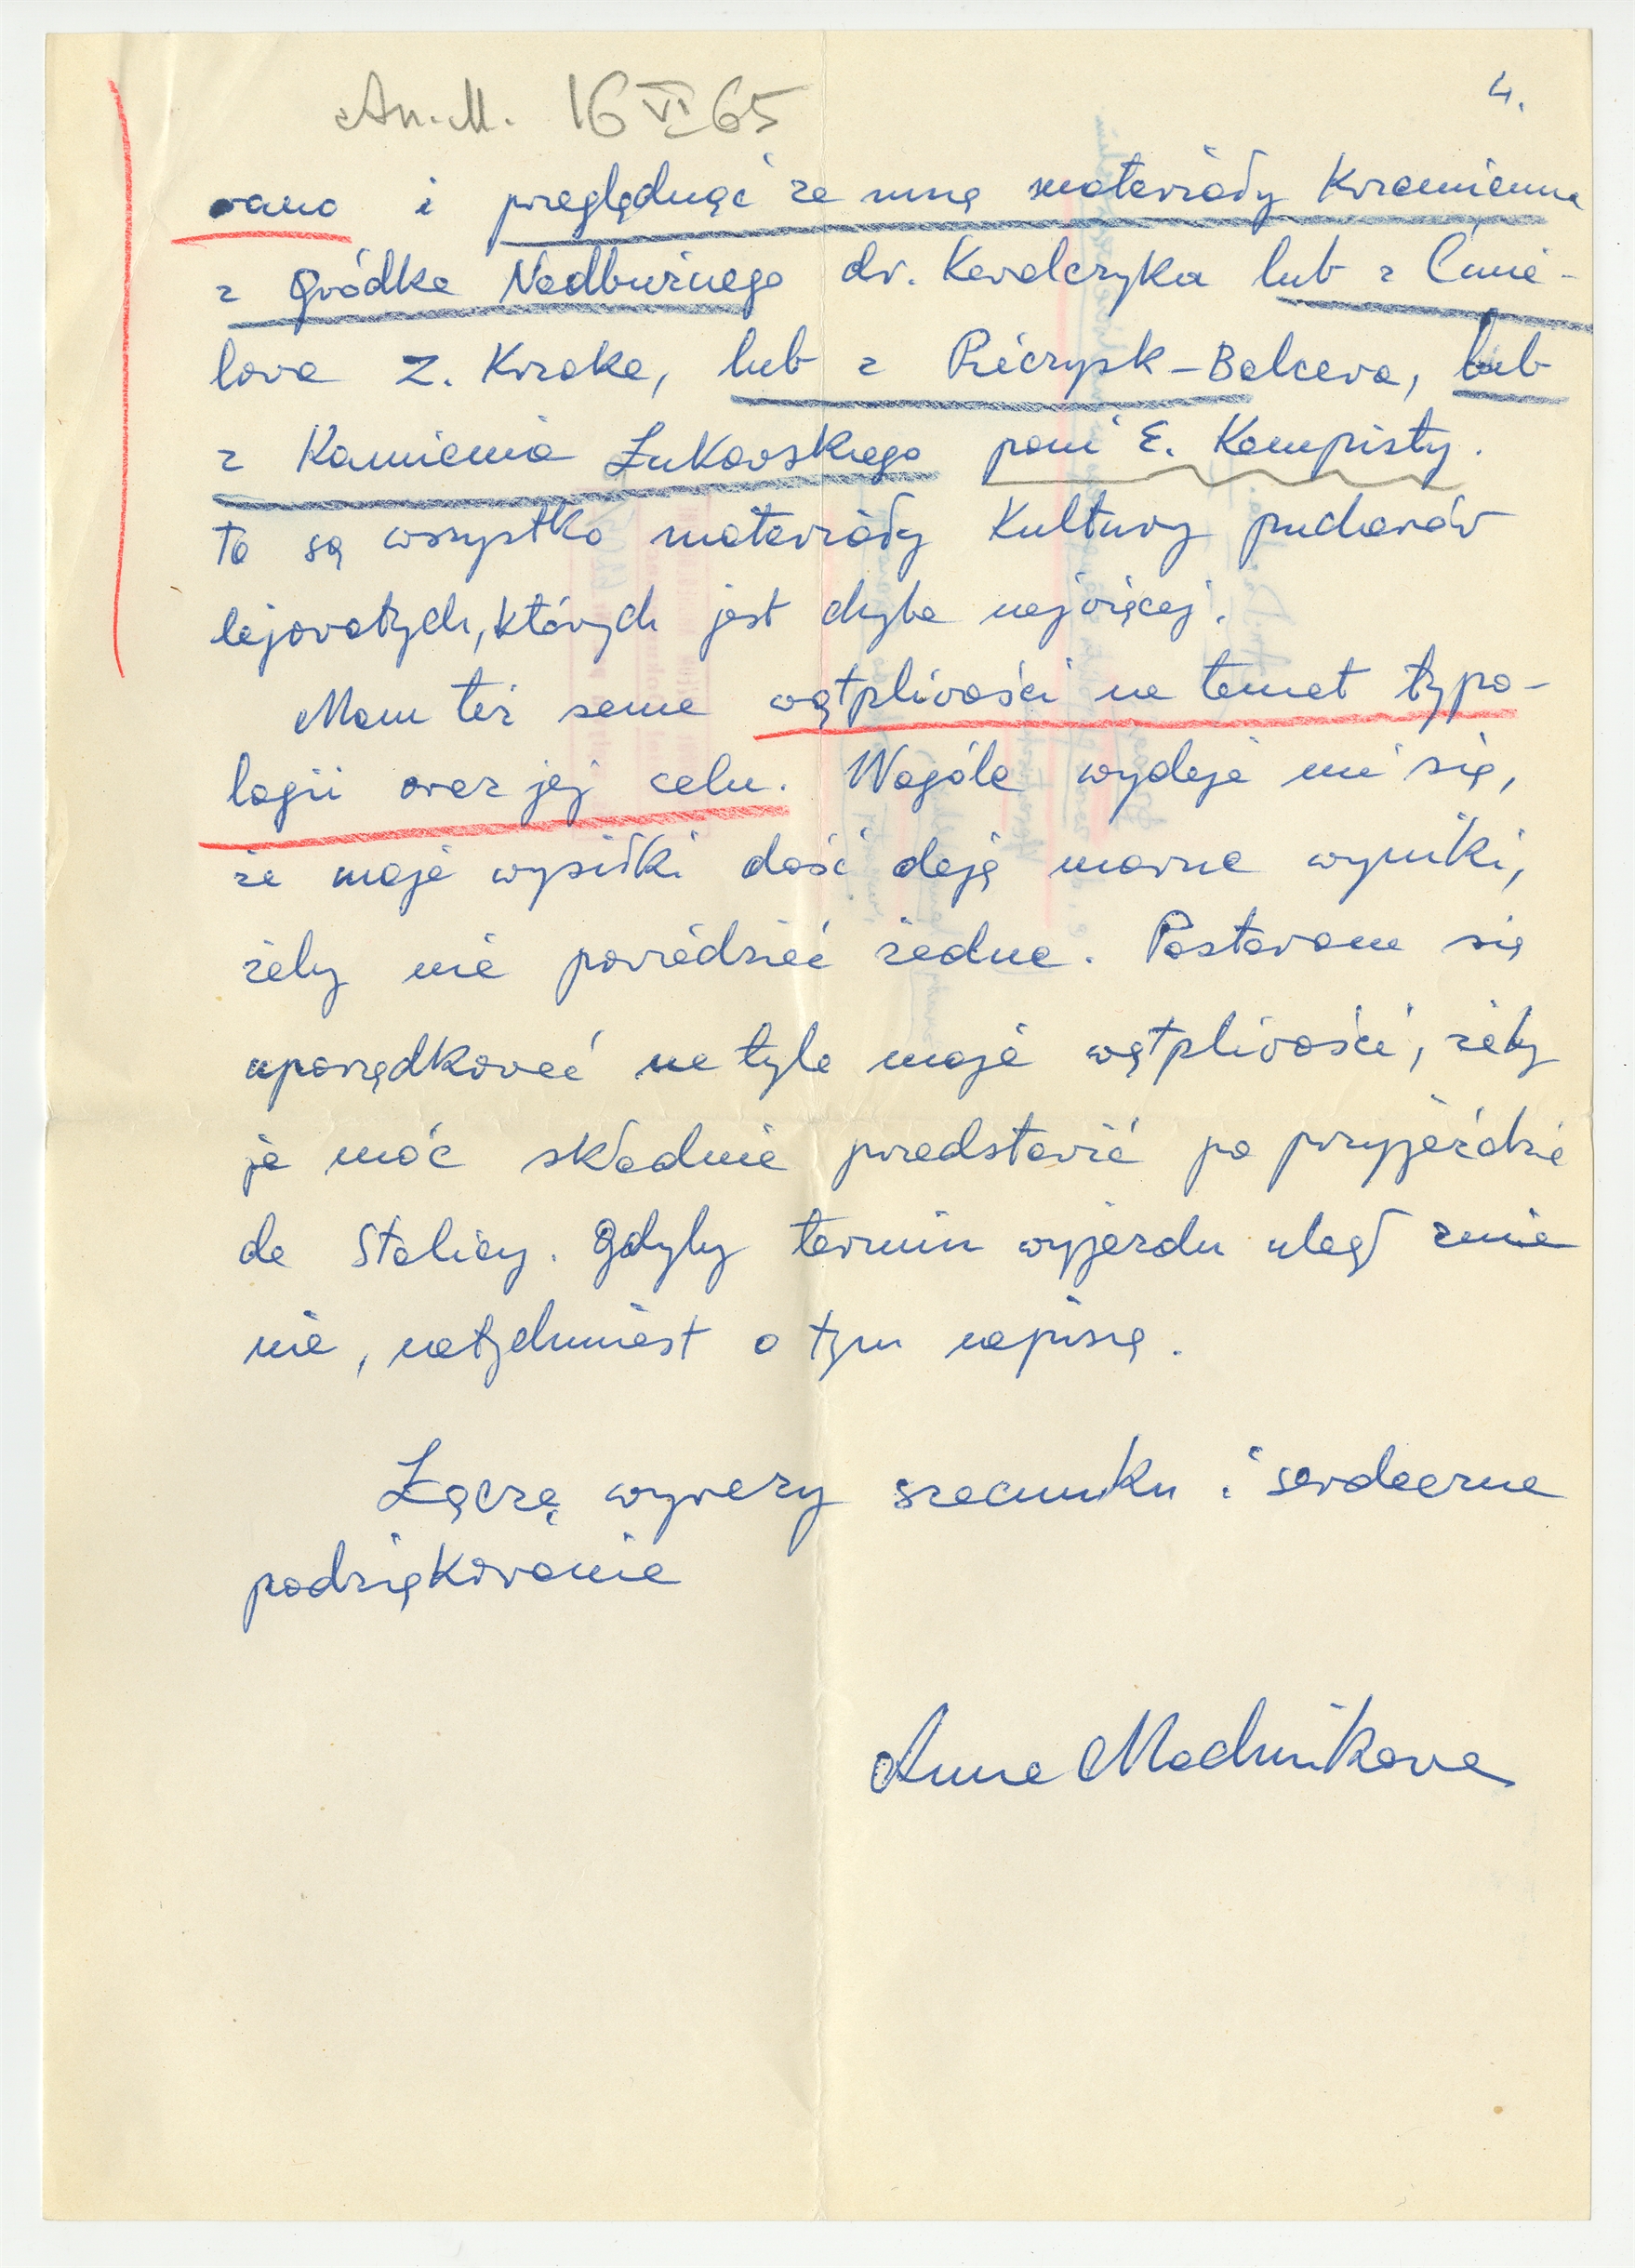 An. M. 16 VI 65
4.
rano i przeglądnąć ze mną materiały krzemienne
z Gródka Nadbużnego dr. Kowalczyka lub z Ćmie-
lowa Z. Krzaka, lub z Pieczysk-Balcewa, lub
z Kamienia Łukowskiego pani E. Kempisty.
To są wszystko materiały Kultury pucharów
lejowatych, których jest chyba najwięcej.
Mam też same wątpliwości na temat typo-
logii oraz jej celu. Wogóle wydaje mi się,
że moje wysiłki dość dają marne wyniki,
żeby nie powiedzieć żadne. Postaram się
uporządkować na tyle moje wątpliwości, żeby
je móc składnie przedstawić po przyjeździe
do Stolicy. Gdyby termin wyjazdu uległ zmia
nie, natychmiast o tym napiszę.
Łączę wyrazy szacunku i serdeczne
podziękowanie
Anna Machnikowa